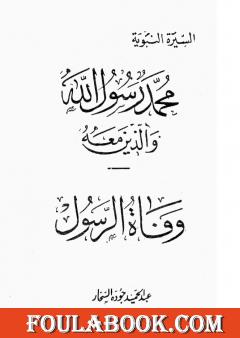 السيرة النبوية
محمد رسول الله
والذين معه
وفاة الرسول
عبد الحميد جودة السحار
FOULABOOK.COM